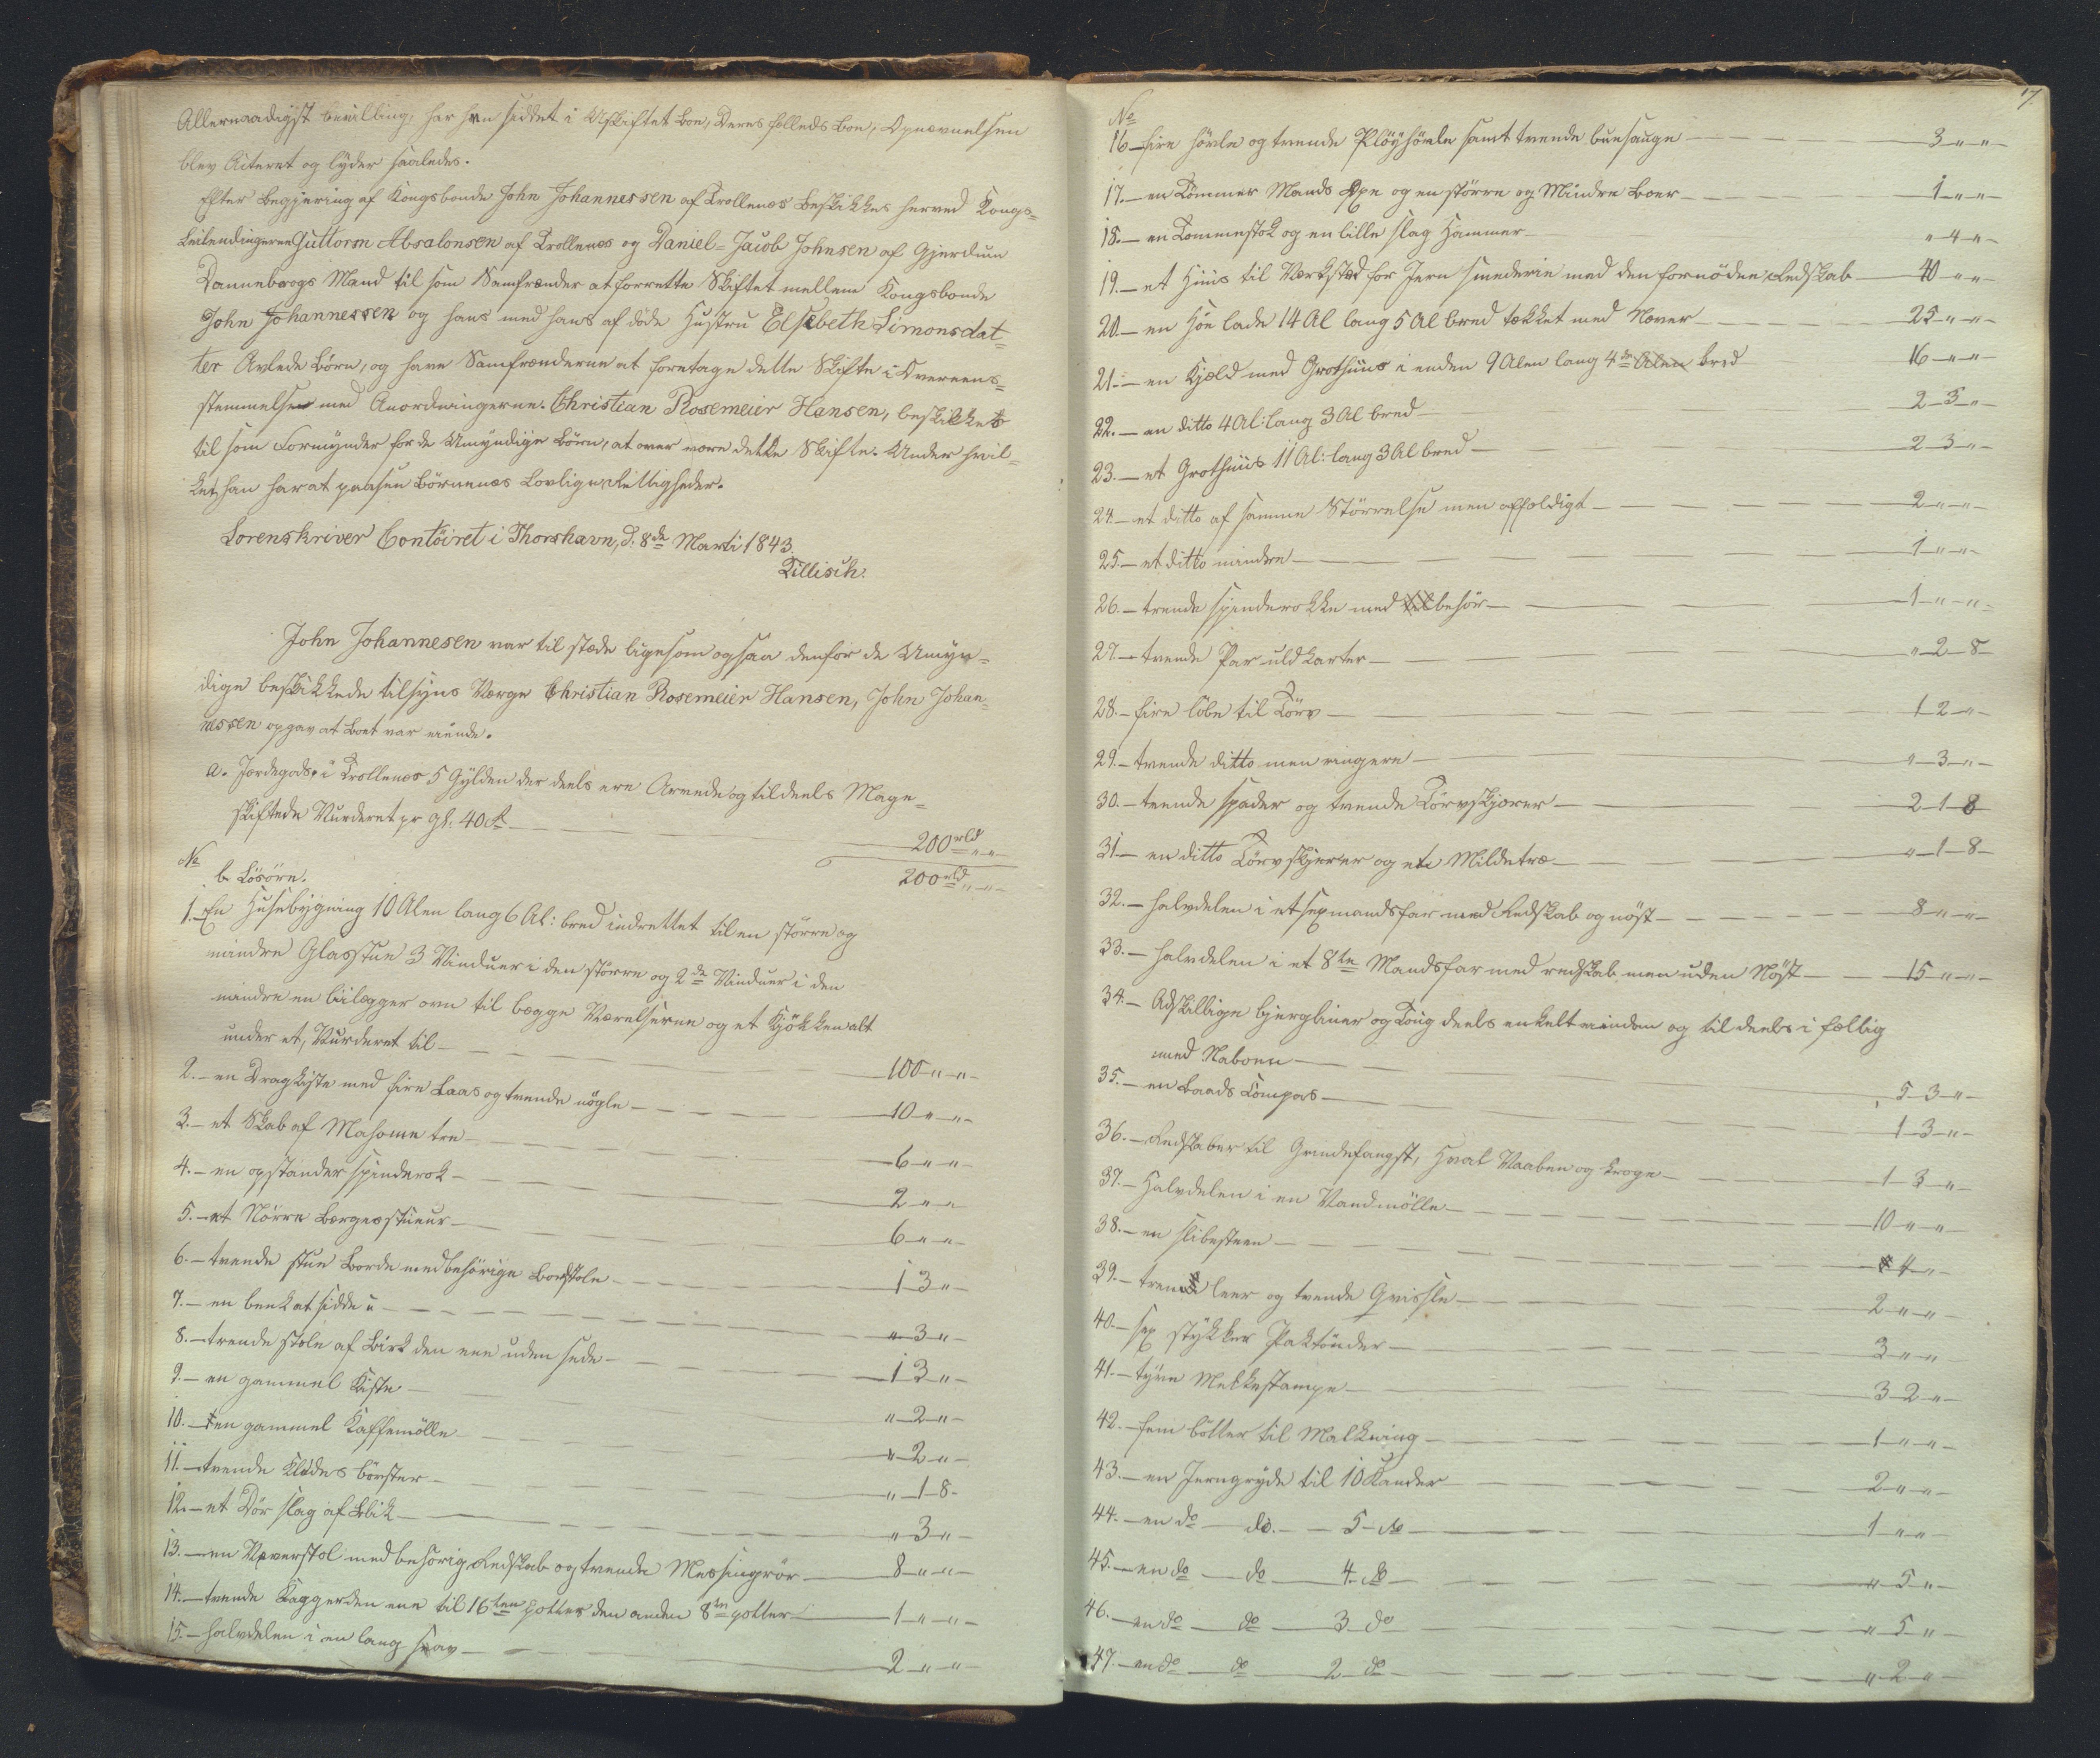 Allernaadigst bevilling, har han siddet i Uskiftet Boe, Deres fælleds Boe, Opnævnelsen
blev Citeret og lyder saaledes.
Efter Begjæring af Kongsbonde John Johannessen af Trollenæs Beskikkes herved Kongs=
Leilendingerne Guttorm Absalonsen af Trollenæs og Daniel=Jacob Johnsen af Gjerdum
Dannebrogs Mand til som Samfrænder at forrette Skiftet mellem Kongsbonde
John Johannessen og hans med hans af døde Hustru Elsebeth Simonsdat=
ter Avlede Børn, og have Samfrænderne at foretage dette Skifte i Overeens=
stemmelse med Anordningerne. Christian Rosemeier Hansen, beskikkes
til som Formynder for de Umyndige Børn, at over være dette Skifte. Under hvil=
ket, han har at paasee Børnenes Lovlige Rettigheder.
Sorenskriver Contöiret i Thorshavn, d. 8de Marti 1843.
Tillisch.
John Johannesen var til stæde ligesom ogsaa den for de Umyn=
dige beskikkede tilsyns Værge Christian Rosemeier Hansen, John Johan=
nessen opgav at Boet var eiende.
a. Jordegods, i Trollenæs 5 Gylden der deels ere Arvede og tildeels Mage=
skiftede Vurderet pr gl. 40 rd — 200 rbd „ „
200 rbd „ „
No b. Løsöre.
1. En Husebygning 10 Alen lang 6 Al: bred indrettet til en större og
mindre Glasstue 3 Vinduer i den större og 2de Vinduer i den
mindre en bilegger ovn til begge Værelserne og et Kjökken alt
under et, Vurderet til — 100 „ „
2. — en Dragkiste med fire Laas og tvende nögle — 10 „ „
3. — et Skab af Mahonie træ — 6 „ „
4. — en opstander spinderok — 2 „ „
5. — et Nörre Bergesstueur — 6 „ „
6. — tvende stue Borde med behörige Bordstole — 1 3 „
7. — en benk at sidde i — „ 3 „
8. — trende stole af Birk den ene uden sede — 1 3 „
9. — en gammel Kiste — „ 2 „
10. — en gammel Kaffemölle — „ 2 „
11. — tvende Klædes börster — „ 1 8
12. — et Dör slag af Blik — „ 3 „
13. — en Væverstol med behörig Redskab og tvende Messingrör — 8 „ „
14. — tvende Kagger den ene til 16ten potter den anden 8te potter — 1 „ „
15. — halvdelen i en lang sav — 2 „ „
17.
No
16 — fire hövle og tvende Plöyhövle samt tvende buesauge — 3 „ „
17. — en Tömmer Mands Öxe og en större og Mindre Boer — 1 „ „
18. — en Tommestok og en lille slag Hammer — „ 4 „
19. — et Huus til Værksted for Jern smederie med den fornödne Redskab — 40 „ „
20. — en Höe lade 14 Al lang 5 Al bred tækket med Næver — 25 „ „
21. — en Kjeld med Grothuus i enden 9 Alen lang 4de Alen bred 16 „ „
22. — en ditto 4 Al: lang 3 Al bred — 2 3 „
23. — et Grothuus 11 Al: lang 3 Al bred — 2 3 „
24. — et ditto af samme Störrelse men affældigt — 2 „ „
25. — et ditto mindre — 1 „ „
26. — trende spinderokke med tilbehör — 1 „ „
27. — tvende Par uld karter — „ 2 8
28. — fire löbe til Törv — 1 2 „
29. — tvende ditto men ringere — „ 3 „
30. — tvende spader og tvende Törvskjærer — 2 1 8
31. — en ditto Törvskjærer og et Mildetræ — „ 1 8
32. — halvdelen i et sexmandsfar med Redskab og nöst — 8 „ „
33. — halvdelen i et 8te Mandsfar med redskab men uden Nöst — 15 „ „
34. — Adskillige bjerglinier og Toug deels enkelt eiendom og til deels i fællig
med Naboen — 5 3 „
35. — en Baads Compas — 1 3 „
36. — Redskaber til Grindefangst, Hval Vaaben og kroge — 1 3 „
37. — Halvdelen i en Vandmölle — 10 „ „
38. — en slibesteen — 4 „
39. — trende leer og tvende Grissle — 2 „ „
40. — sex stykker Paktönder — 3 „ „
41. — tyve Melkestampe — 3 2 „
42. — fem bötter til Malkning — 1 „ „
43. — en Jerngryde til 10 Kander — 2 „ „
44. — en do — do. — 5 do — 1 „ „
45. — en do — do — 4 do — „ 5 „
46. — en do — do — 3 do — „ 5 „
47. — en do — do — 2 do — „ 2 „